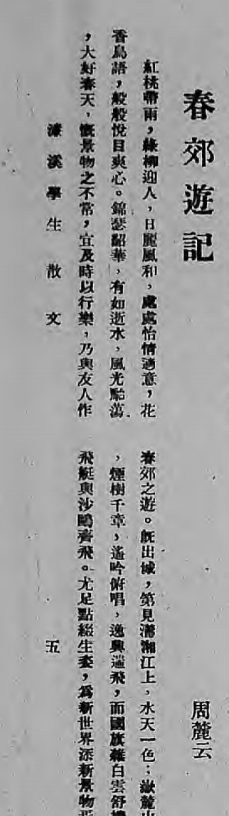 春郊遊記
周麓云
紅桃帶雨，綠柳迎人，日麗風和，處處怡情適意，花
香鳥語，般般悅目爽心。錦瑟韶華，有如逝水，風光駘蕩
，大好春天，慨景物之不常，宜及時以行樂，乃與友人作
春郊之遊。既出城，第見瀟湘江上，水天一色；嶽麓山
，煙樹千章，遙吟俯唱，逸興遄飛，而國旗雜白雲舒
飛艇與沙鷗齊飛。尤足點綴生姿，為新世界深新景物
濂溪學生散文
五